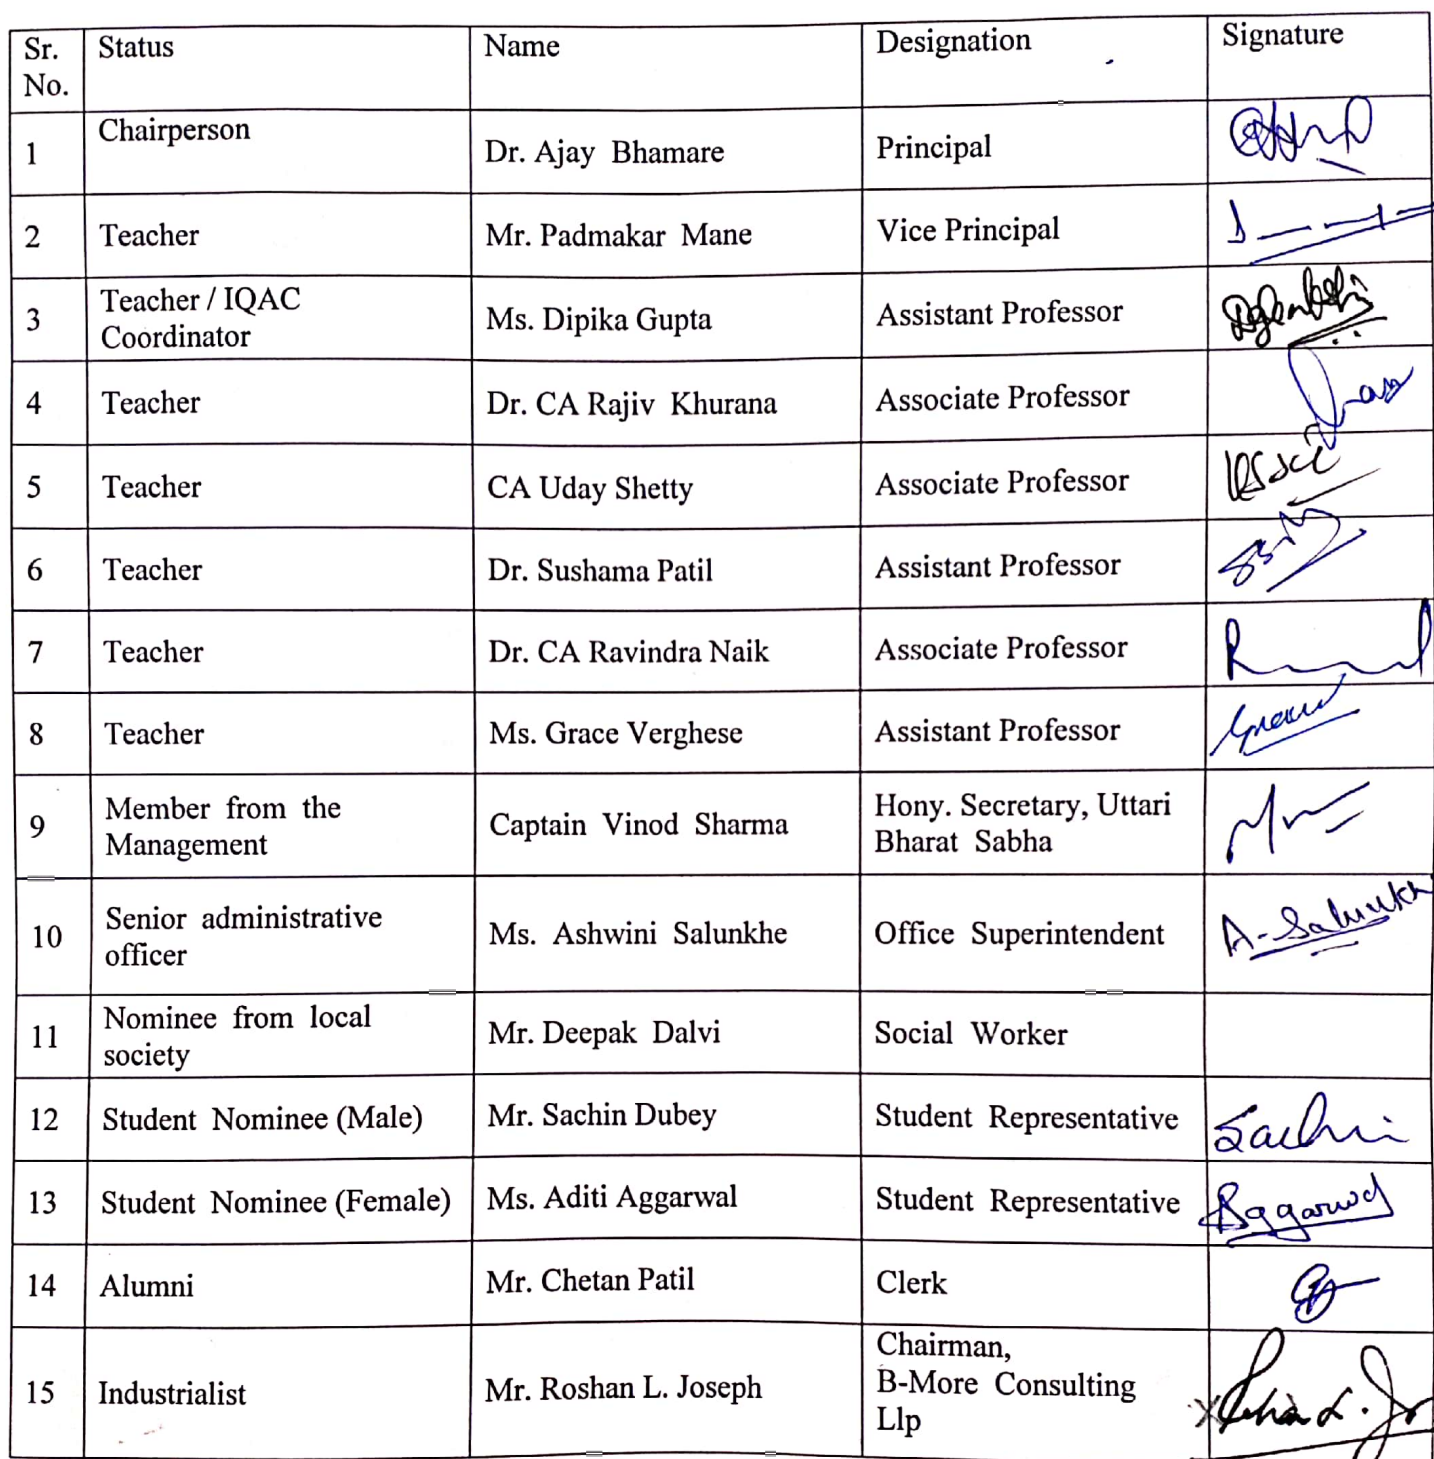 Sr. No. Status Name Designation Signature
1 Chairperson Dr. Ajay Bhamare Principal
2 Teacher Mr. Padmakar Mane Vice Principal
3 Teacher / IQAC Coordinator Ms. Dipika Gupta Assistant Professor
4 Teacher Dr. CA Rajiv Khurana Associate Professor
5 Teacher CA Uday Shetty Associate Professor
6 Teacher Dr. Sushama Patil Assistant Professor
7 Teacher Dr. CA Ravindra Naik Associate Professor
8 Teacher Ms. Grace Verghese Assistant Professor
9 Member from the Management Captain Vinod Sharma Hony. Secretary, Uttari Bharat Sabha
10 Senior administrative officer Ms. Ashwini Salunkhe Office Superintendent
11 Nominee from local society Mr. Deepak Dalvi Social Worker
12 Student Nominee (Male) Mr. Sachin Dubey Student Representative
13 Student Nominee (Female) Ms. Aditi Aggarwal Student Representative
14 Alumni Mr. Chetan Patil Clerk
15 Industrialist Mr. Roshan L. Joseph Chairman, B-More Consulting Llp